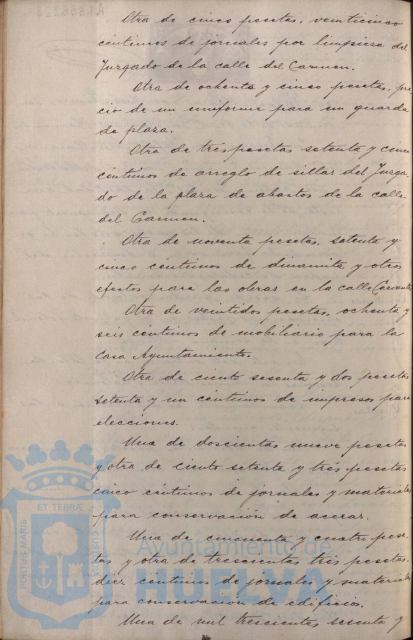 Otra de cinco pesetas, veinticinco
céntimos de jornales por limpieza del
Juzgado de la calle del Carmen.
Otra de ochenta y cinco pesetas, pre
cio de un uniforme para un guarda
de plaza.
Otra de tres pesetas setenta y cinco
céntimos de arreglo de sillas del Juzga-
do de la plaza de abastos de la calle
del Carmen.
Otra de noventa pesetas, setenta y
cinco céntimos de dinamita y otros
efectos para las obras en la calle Cervantes
Otra de veintidos pesetas, ochenta y
seis céntimos de mobiliario para la
Casa Ayuntamiento.
Otra de ciento sesenta y dos pesetas
setenta y un céntimos de impresos para
elecciones.
Una de doscientas nueve pesetas
y otra de ciento setenta y tres pesetas
cinco céntimos de jornales y materiales
para conservación de aceras.
Una de cincuenta y cuatro pese-
tas y otra de trescientas tres pesetas,
diez céntimos de jornales y materiales
para conservación de edificios.
Una de mil trescientas sesenta y
PORTUS MARIS
ET TERRÆ
Ayuntamiento de
HUELVA